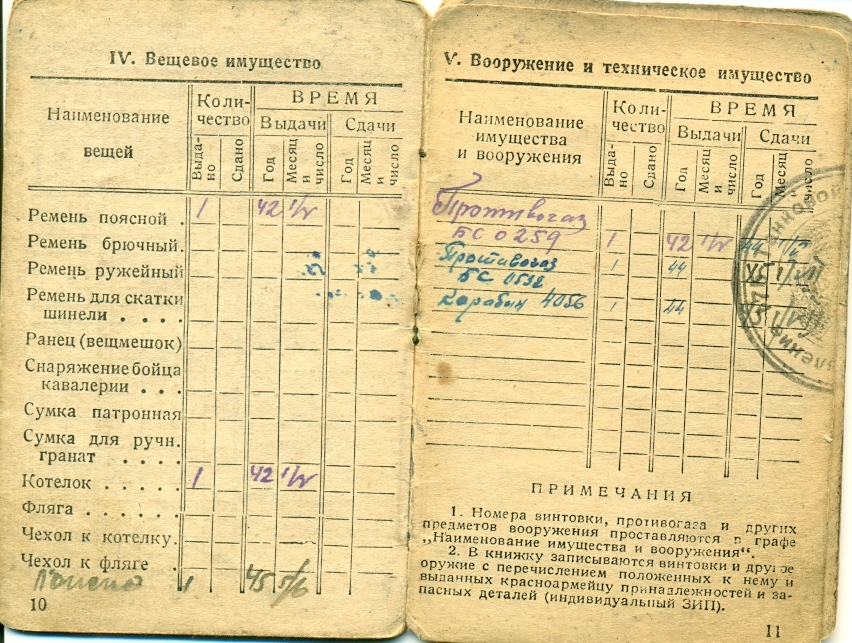 IV. Вещевое имущество
Наименование вещей
Коли-
чество
ВРЕМЯ
Выдачи
Сдачи
Выда-
но
Сдано
Год
Месяц
и
число
Год
Месяц
и
число
Ремень поясной . 1 42 1/V
Ремень брючный.
Ремень ружейный
Ремень для скатки
шинели . . . .
Ранец (вещмешок)
Снаряжение бойца
кавалерии . . .
Сумка патронная
Сумка для ручн.
гранат . . . .
Котелок . . . . . 1 42 1/V
Фляга . . . . . .
Чехол к котелку.
Чехол к фляге .
1 45 5/6
10
V. Вооружение и техническое имущество
Наименование
имущества
и вооружения
Коли-
чество
ВРЕМЯ
Выдачи
Сдачи
Выда-
но
Сдано
Год
Месяц
и
число
Год
Месяц
и
число
Противогаз
БС 0259 1 42 1/V 44
Противогаз 1 44
БС 0532
Карабин 4056 1 44
ПРИМЕЧАНИЯ
1. Номера винтовки, противогаза и других
предметов вооружения проставляются в графе
„Наименование имущества и вооружения“.
2. В книжку записываются винтовки и другое
оружие с перечислением положенных к нему и
выданных красноармейцу принадлежностей и за-
пасных деталей (индивидуальный ЗИП).
11